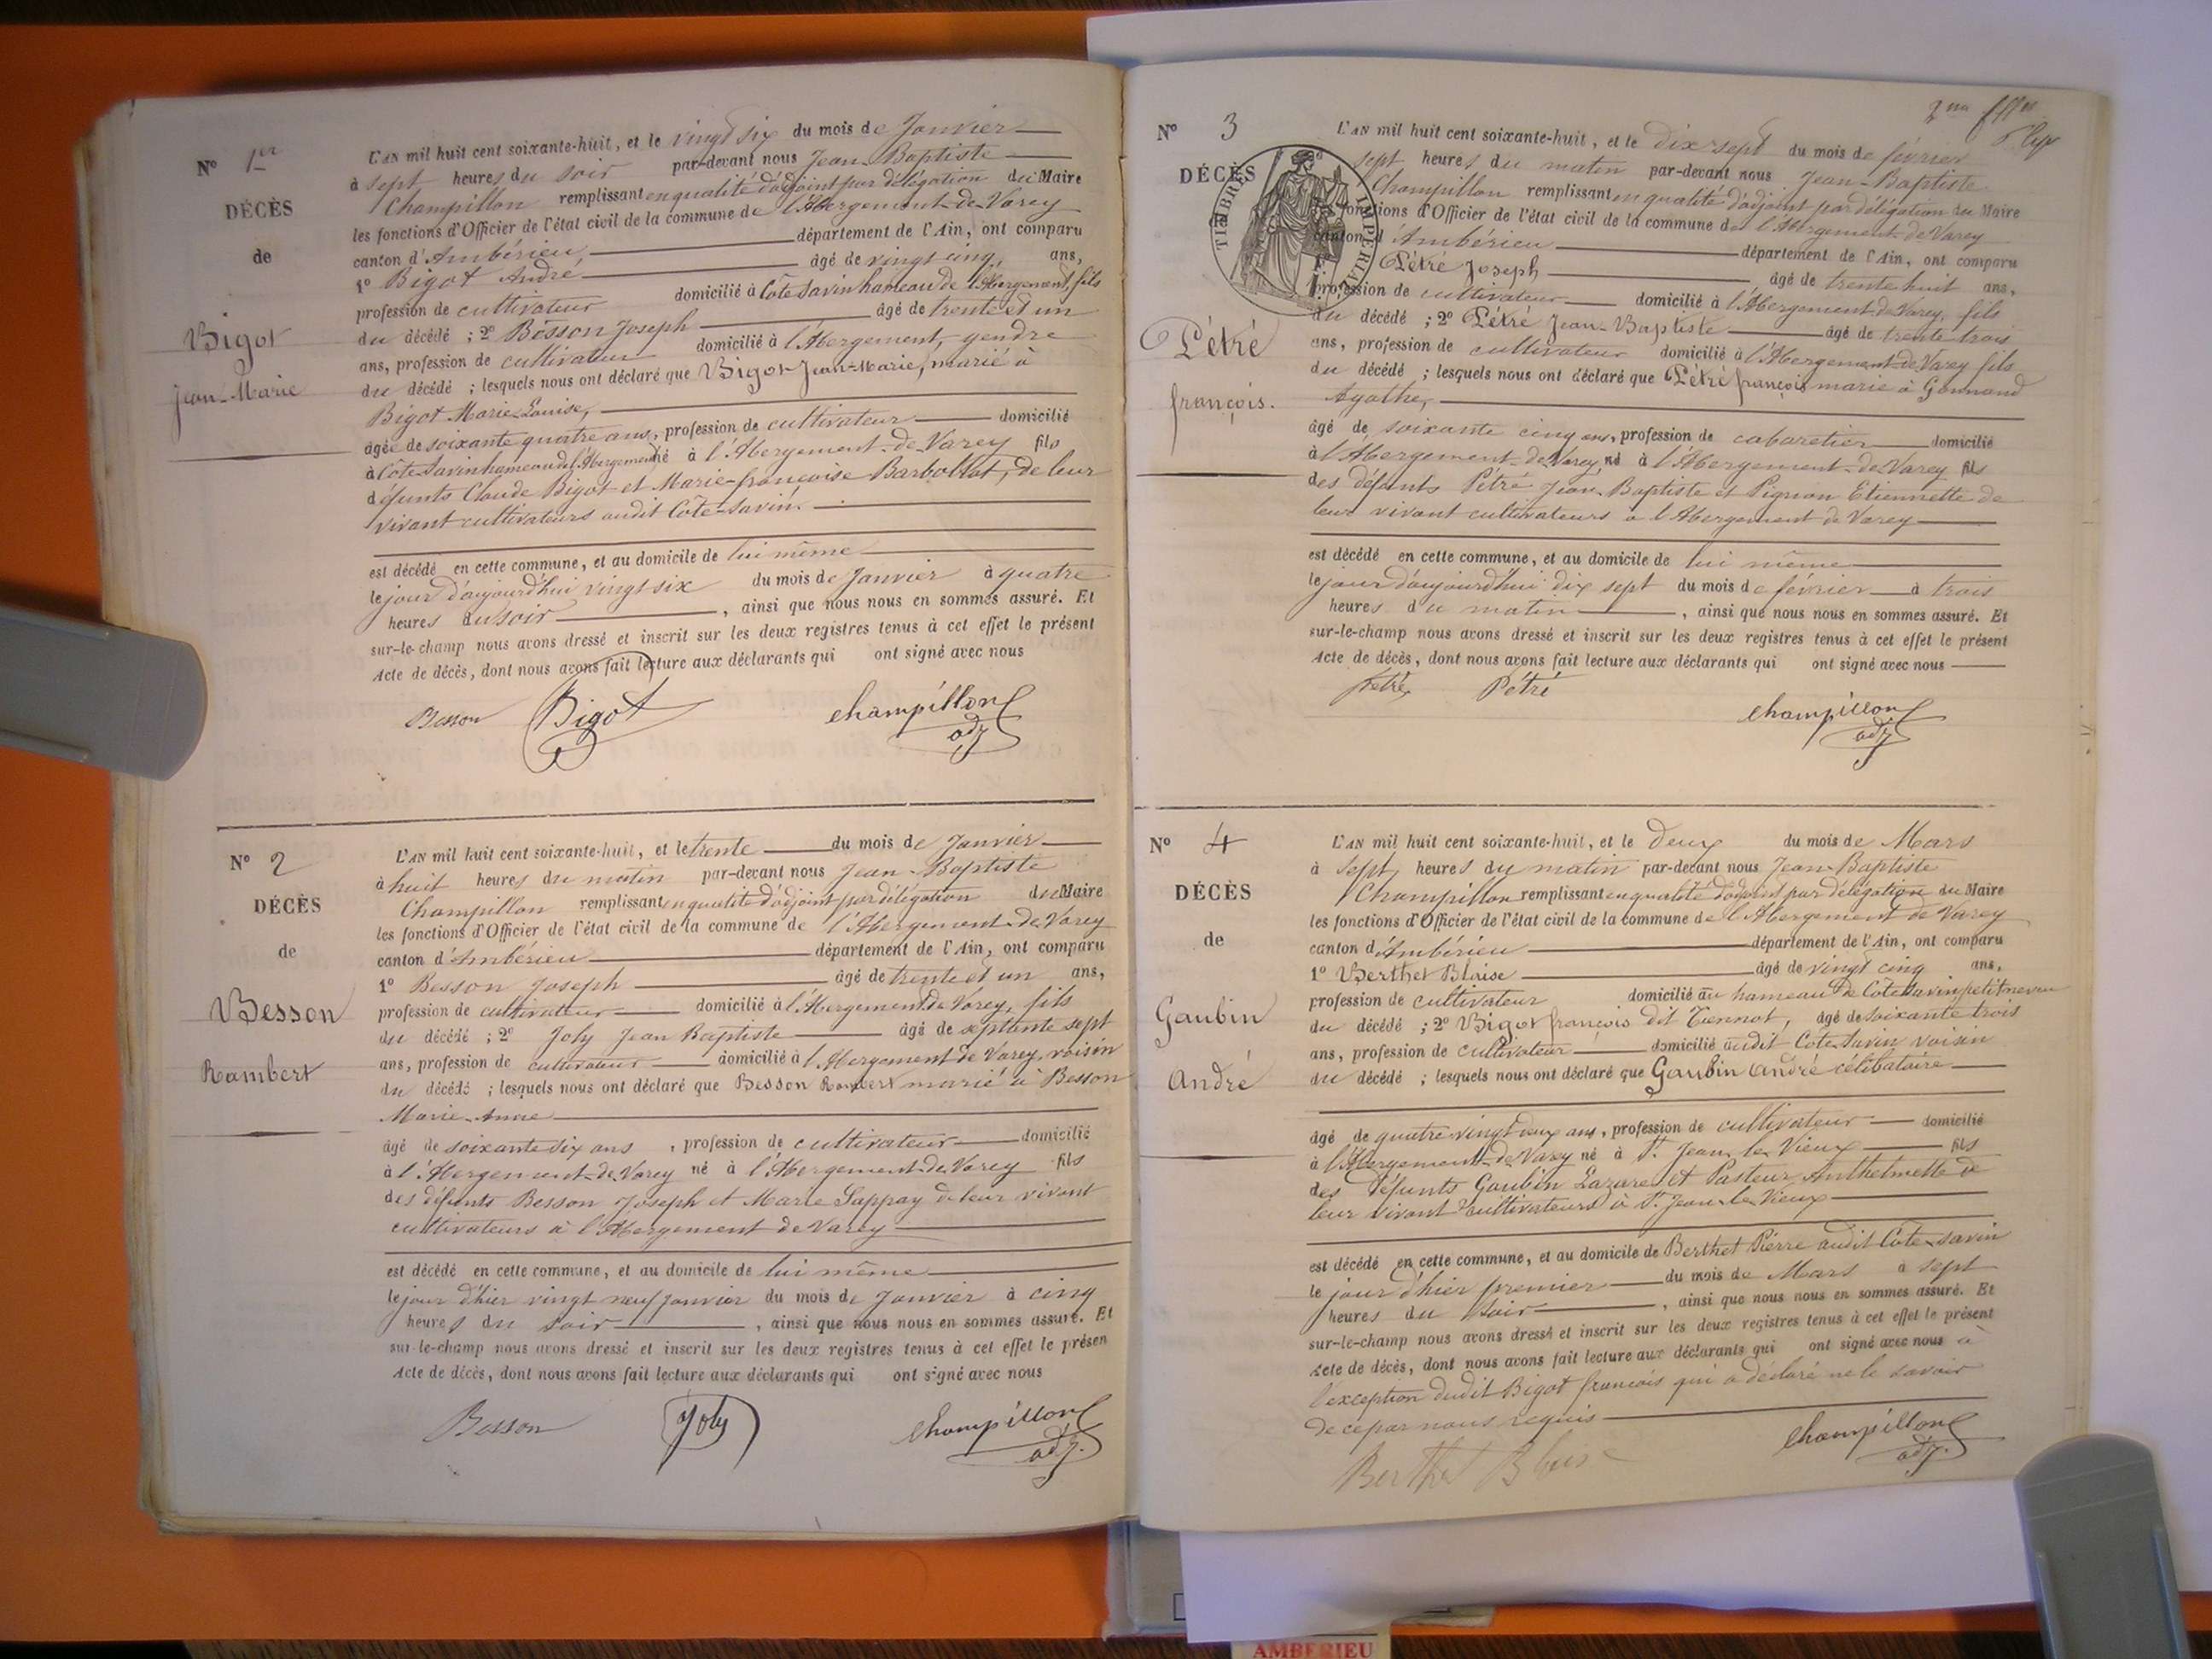 N° 1er
DÉCÈS
de
Bigot
Jean-Marie
L'AN mil huit cent soixante-huit, et le vingt six du mois de Janvier
à sept heures du soir par-devant nous Jean-Baptiste
Champillon remplissant en qualité d'adjoint par délégation du Maire
les fonctions d'Officier de l'état civil de la commune de l'Abergement-de-Varey
canton d'Ambérieu, département de l'Ain, ont comparu
1° Bigot André âgé de vingt cinq, ans,
profession de cultivateur domicilié à Côte Savin hameau de l'Abergement, fils
du décédé ; 2° Besson Joseph âgé de trente et un
ans, profession de cultivateur domicilié à l'Abergement, gendre
du décédé ; lesquels nous ont déclaré que Bigot Jean-Marie, marié à
Bigot Marie-Louise,
âgée de soixante quatre ans, profession de cultivateur domicilié
à Côte-Savin hameau de l'Abergement né à l'Abergement-de-Varey fils
défunts Claude Bigot et Marie-françoise Barbollat, de leur
vivant cultivateurs audit Côte-Savin.
est décédé en cette commune, et au domicile de lui même
le jour d'aujourd'hui vingt-six du mois de Janvier à quatre
heures du soir, ainsi que nous nous en sommes assuré. Et
sur-le-champ nous avons dressé et inscrit sur les deux registres tenus à cet effet le présent
Acte de décès, dont nous avons fait lecture aux déclarants qui ont signé avec nous
Besson Bigot Champillon
adj
N° 2
DÉCÈS
de
Besson
Rambert
L'AN mil huit cent soixante-huit, et le trente du mois de Janvier
à huit heures du matin par-devant nous Jean-Baptiste
Champillon remplissant en qualité d'adjoint par délégation du Maire
les fonctions d'Officier de l'état civil de la commune de l'Abergement-de-Varey
canton d'Ambérieu département de l'Ain, ont comparu
1° Besson Joseph âgé de trente et un ans,
profession de cultivateur domicilié à l'Abergement de Varey, fils
du décédé ; 2° Joly Jean Baptiste âgé de septante sept
ans, profession de cultivateur domicilié à l'Abergement de Varey, voisin
du décédé ; lesquels nous ont déclaré que Besson Rambert marié à Besson
Marie-Anne
âgé de soixante six ans, profession de cultivateur domicilié
à l'Abergement-de-Varey né à l'Abergement-de-Varey fils
des défunts Besson Joseph et Marie Sappay de leur vivant
cultivateurs à l'Abergement de Varey
est décédé en cette commune, et au domicile de lui même
le jour d'hier vingt neuf janvier du mois de Janvier à cinq
heures du soir, ainsi que nous nous en sommes assuré. Et
sur-le-champ nous avons dressé et inscrit sur les deux registres tenus à cet effet le présen
Acte de décès, dont nous avons fait lecture aux déclarants qui ont signé avec nous
Besson Joly Champillon
adj.
N° 3
DÉCÈS
TIMBRE IMPERIAL
Pétré
françois.
L'AN mil huit cent soixante-huit, et le dix sept du mois de février
sept heures du matin par-devant nous Jean-Baptiste
Champillon remplissant en qualité d'adjoint par délégation du Maire
fonctions d'Officier de l'état civil de la commune de l'Abergement-de-Varey
canton d'Ambérieu département de l'Ain, ont comparu
Pétré Joseph âgé de trente huit ans,
profession de cultivateur domicilié à l'Abergement de Varey, fils
du décédé ; 2° Pétré Jean-Baptiste âgé de trente trois
ans, profession de cultivateur domicilié à l'Abergement-de-Varey fils
du décédé ; lesquels nous ont déclaré que Pétré françois marié à Gonnand
Agathe,
âgé de soixante cinq ans, profession de cabaretier domicilié
à l'Abergement-de-Varey, né à l'Abergement-de-Varey fils
des défunts Pétré Jean-Baptiste et Pignion Etiennette de
leur vivant cultivateurs à l'Abergement de Varey
est décédé en cette commune, et au domicile de lui même
le jour d'aujourd'hui dix sept du mois de février à trois
heures du matin, ainsi que nous nous en sommes assuré. Et
sur-le-champ nous avons dressé et inscrit sur les deux registres tenus à cet effet le présent
Acte de décès, dont nous avons fait lecture aux déclarants qui ont signé avec nous
Pétré Pétré Champillon
adj
N° 4
DÉCÈS
de
Gaubin
André
L'AN mil huit cent soixante-huit, et le Deux du mois de Mars
à sept heures du matin par-devant nous Jean-Baptiste
Champillon remplissant en qualité d'adjoint par délégation du Maire
les fonctions d'Officier de l'état civil de la commune de l'Abergement de Varey
canton d'Ambérieu département de l'Ain, ont comparu
1° Berthet Blaise âgé de vingt cinq ans,
profession de cultivateur domicilié au hameau de Cote Savin petit neveu
du décédé ; 2° Bigot françois dit Tiennot, âgé de soixante trois
ans, profession de cultivateur domicilié audit Cote Savin voisin
du décédé ; lesquels nous ont déclaré que Gaubin André célibataire
âgé de quatre vingt deux ans, profession de cultivateur domicilié
à l'Abergement-de-Varey né à St. Jean le Vieux fils
des défunts Gaubin Lazare et Pasteur Anthelmette de
leur vivant cultivateurs à St. Jean-le-Vieux
est décédé en cette commune, et au domicile de Berthet Pierre audit Cote-savin
le jour d'hier premier du mois de Mars à sept
heures du soir, ainsi que nous nous en sommes assuré. Et
sur-le-champ nous avons dressé et inscrit sur les deux registres tenus à cet effet le présent
Acte de décès, dont nous avons fait lecture aux déclarants qui ont signé avec nous à
l'exception dudit Bigot françois qui a déclaré ne le savoir
de ce par nous requis
Berthet Blaise Champillon
adj.
AMBERIEU